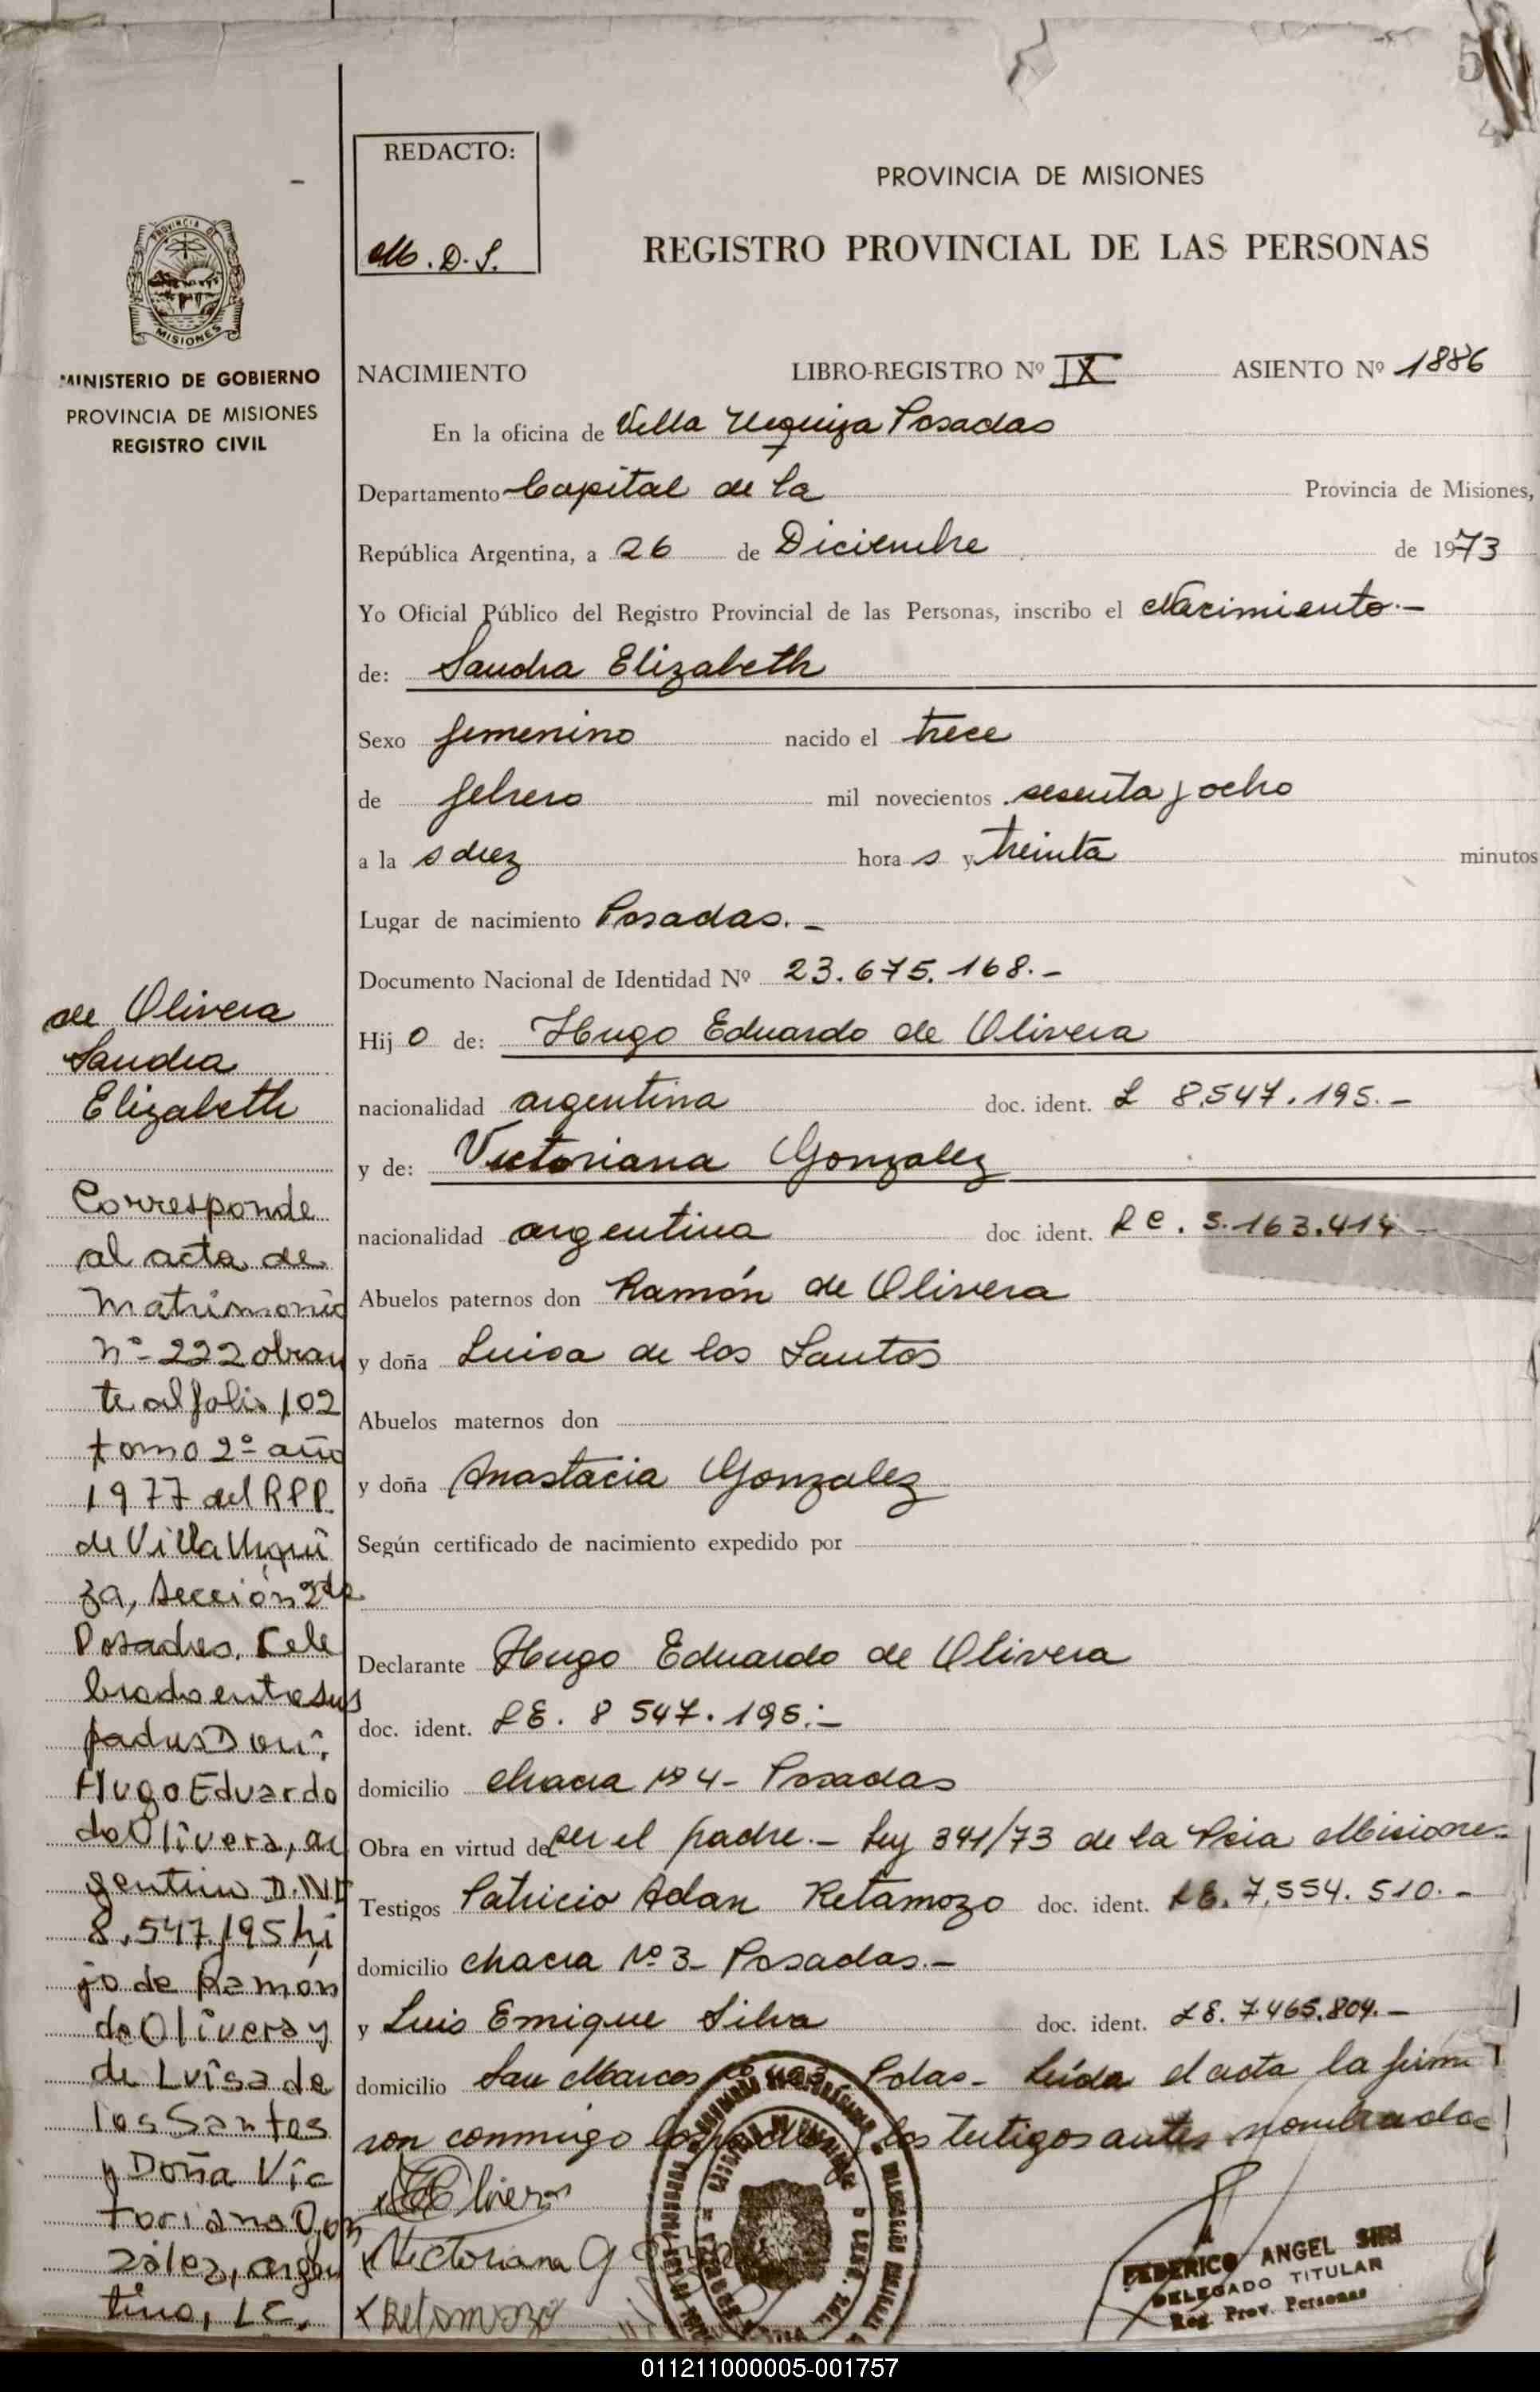 REDACTO:
M. D. S.
PROVINCIA DE MISIONES
REGISTRO PROVINCIAL DE LAS PERSONAS
PROVINCIA DE
MISIONES
MINISTERIO DE GOBIERNO
PROVINCIA DE MISIONES
REGISTRO CIVIL
NACIMIENTO LIBRO-REGISTRO Nº IX ASIENTO Nº 1886
En la oficina de Villa Urquiza Posadas
Departamento Capital de la Provincia de Misiones,
República Argentina, a 26 de Diciembre de 1973
Yo Oficial Público del Registro Provincial de las Personas, inscribo el Nacimiento.-
de: Sandra Elizabeth
Sexo femenino nacido el trece
de febrero mil novecientos sesenta y ocho
a la s diez hora s y treinta minutos
Lugar de nacimiento Posadas.-
Documento Nacional de Identidad Nº 23.675.168.-
Hij o de: Hugo Eduardo de Olivera
nacionalidad argentina doc. ident. L 8.547.195.-
y de: Victoriana Gonzalez
nacionalidad argentina doc ident. LC. 5.163.414
Abuelos paternos don Ramón de Olivera
y doña Luisa de los Santos
Abuelos maternos don
y doña Anastacia Gonzalez
Según certificado de nacimiento expedido por
Declarante Hugo Eduardo de Olivera
doc. ident. LE. 8 547.195.-
domicilio chacra Nº 4- Posadas
Obra en virtud de ser el padre.- Ley 341/73 de la Pcia Misiones-
Testigos Patricio Adan Retamozo doc. ident. LE. 7.554.510.-
domicilio chacra Nº 3- Posadas.-
y Luis Enrique Silva doc. ident. LE. 7.465.804.-
domicilio San Marcos Pdas- Leída el acta la firma
ron conmigo los testigos antes nombrados
Olivera
Victoriana
Retamozo
FEDERICO ANGEL SIRI
DELEGADO TITULAR
Reg. Prov. Personas
de Olivera
Sandra
Elizabeth
Corresponde
al acta de
Matrimonio
nº 222 obran
te al folio 102
tomo 2º año
1977 del RPP.
de Villa Urqui
za, Sección 2da
Posadas. Cele
brado entre sus
padres Don:
Hugo Eduardo
de Olivera, ar
gentino D.N.I
8.547.195 hi
jo de Ramón
de Olivera y
de Luisa de
los Santos
y Doña Vic
toriana Gon
zález, argen
tina, LC.
011211000005-001757